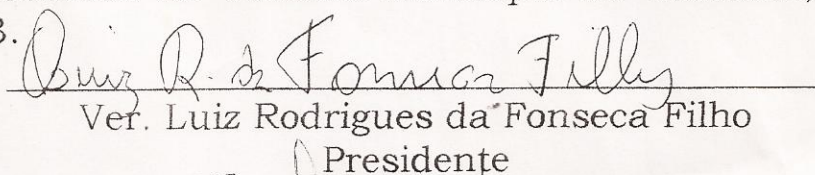 3.
Luiz R. da Fonseca Filho
Ver. Luiz Rodrigues da Fonseca Filho
Presidente